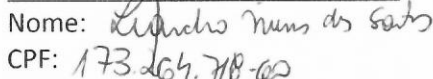 Nome: Leandro Nunes dos Santos
CPF: 173.264.718-00